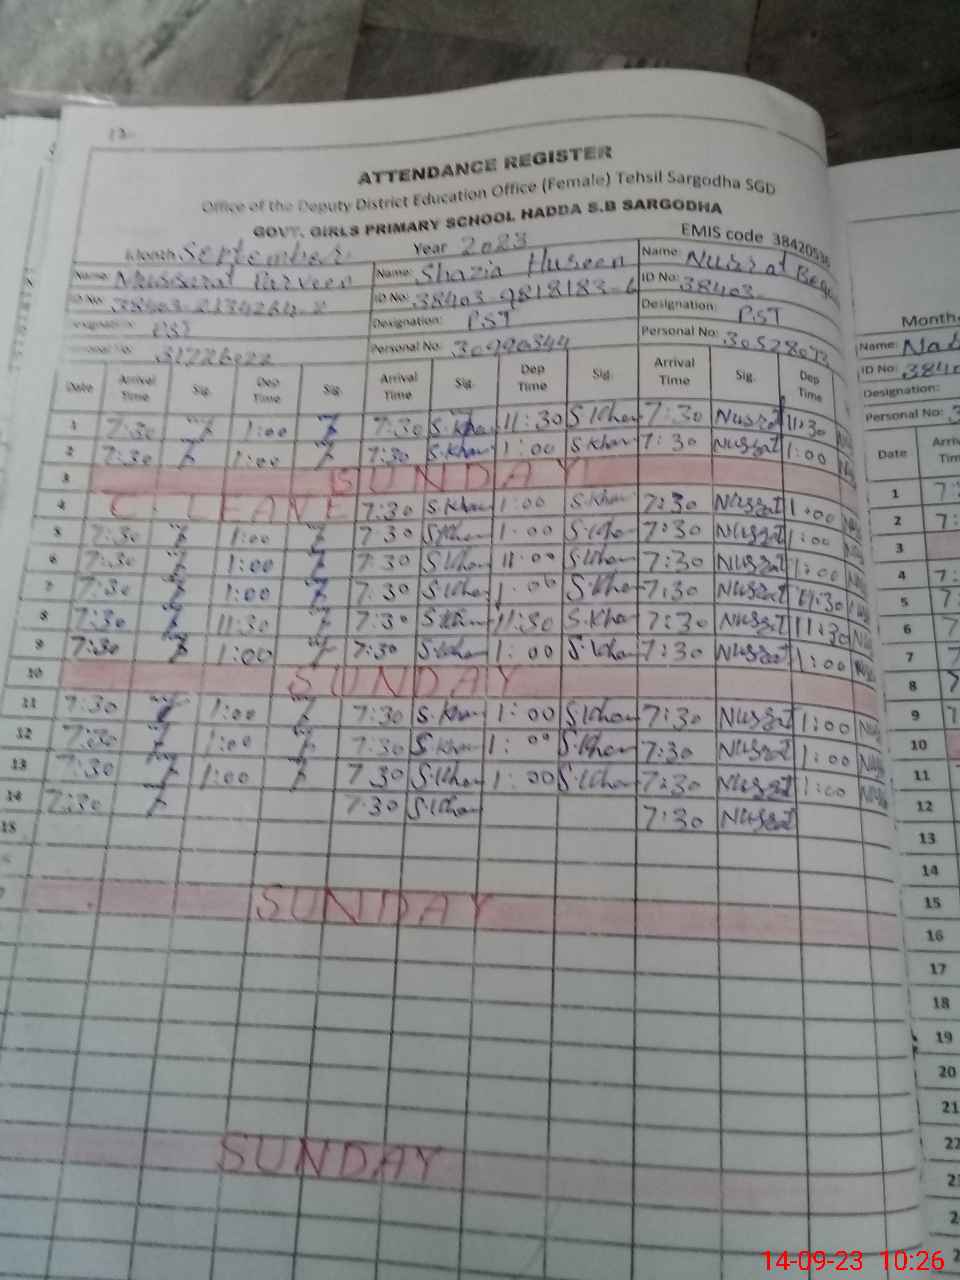 12
ATTENDANCE REGISTER
Office of the Deputy District Education Office (Female) Tehsil Sargodha SGD
GOVT. GIRLS PRIMARY SCHOOL HADDA S.B SARGODHA
Month September Year 2023 EMIS code 38420536
Name: Mussarat Parveen Name: Shazia Huseen Name: Nusrat
ID No: ID No: 38403-9818183-6 ID No: 38403-
PST Designation: PST Designation: PST
31226022 Personal No: 30990344 Personal No: 30528073
Date Arrival Time Sig. Dep Time Sig. Arrival Time Sig. Dep Time Sig. Arrival Time Sig. Dep Time
1 7:30 1:00 7:30 S.Khan 11:30 S.Khan 7:30 Nusrat 11:30
2 7:30 1:00 7:30 S.Khan 1:00 S.Khan 7:30 Nusrat 1:00
3 SUNDAY
4 C. LEAVE 7:30 S.Khan 1:00 S.Khan 7:30 Nusrat 1:00
5 7:30 1:00 7:30 S.Khan 1:00 S.Khan 7:30 Nusrat 1:00
6 7:30 1:00 7:30 S.Khan 11:00 S.Khan 7:30 Nusrat 1:00
7 7:30 1:00 7:30 S.Khan 1:00 S.Khan 7:30 Nusrat 11:30
8 7:30 11:30 7:30 S.Khan 11:30 S.Khan 7:30 Nusrat 11:30
9 7:30 1:00 7:30 S.Khan 1:00 S.Khan 7:30 Nusrat 1:00
10 SUNDAY
11 7:30 1:00 7:30 S.Khan 1:00 S.Khan 7:30 Nusrat 1:00
12 7:30 1:00 7:30 S.Khan 1:00 S.Khan 7:30 Nusrat 1:00
13 7:30 1:00 7:30 S.Khan 1:00 S.Khan 7:30 Nusrat 1:00
14 7:30 7:30 S.Khan 7:30 Nusrat
15
SUNDAY
SUNDAY
Month
Name:
ID No: 3840
Designation:
Personal No: 3
Date
1
2
3
4
5
6
7
8
9
10
11
12
13
14
15
16
17
18
19
20
21
22
14-09-23 10:26